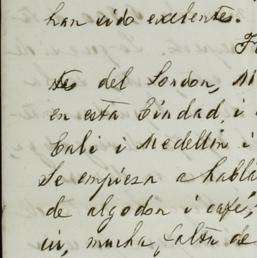 han sido exelentes.
tes del London,
en esta Ciudad, i
Cali i Medellin i
Se empiesa a habla
de algodon i café,
mucha, falta de